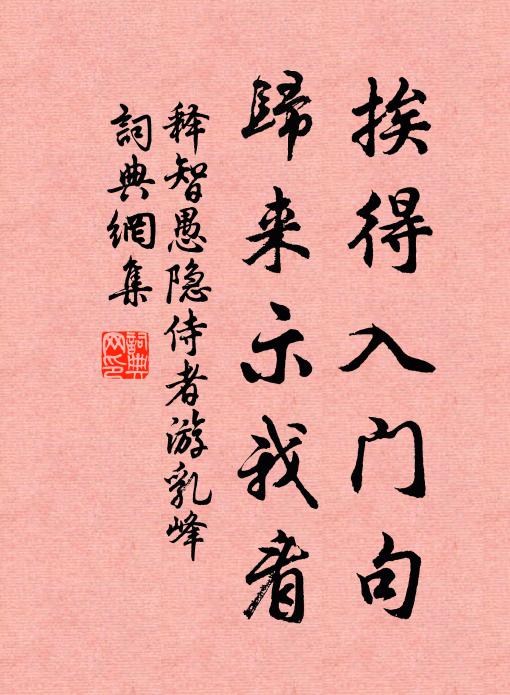 挨得入门句
歸来示我看
释智愚隐侍者游乳峰
詞典網集
詞典
网印